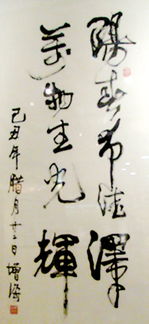 陽春布德澤
萬物生光輝
己丑年腊月廿二日增